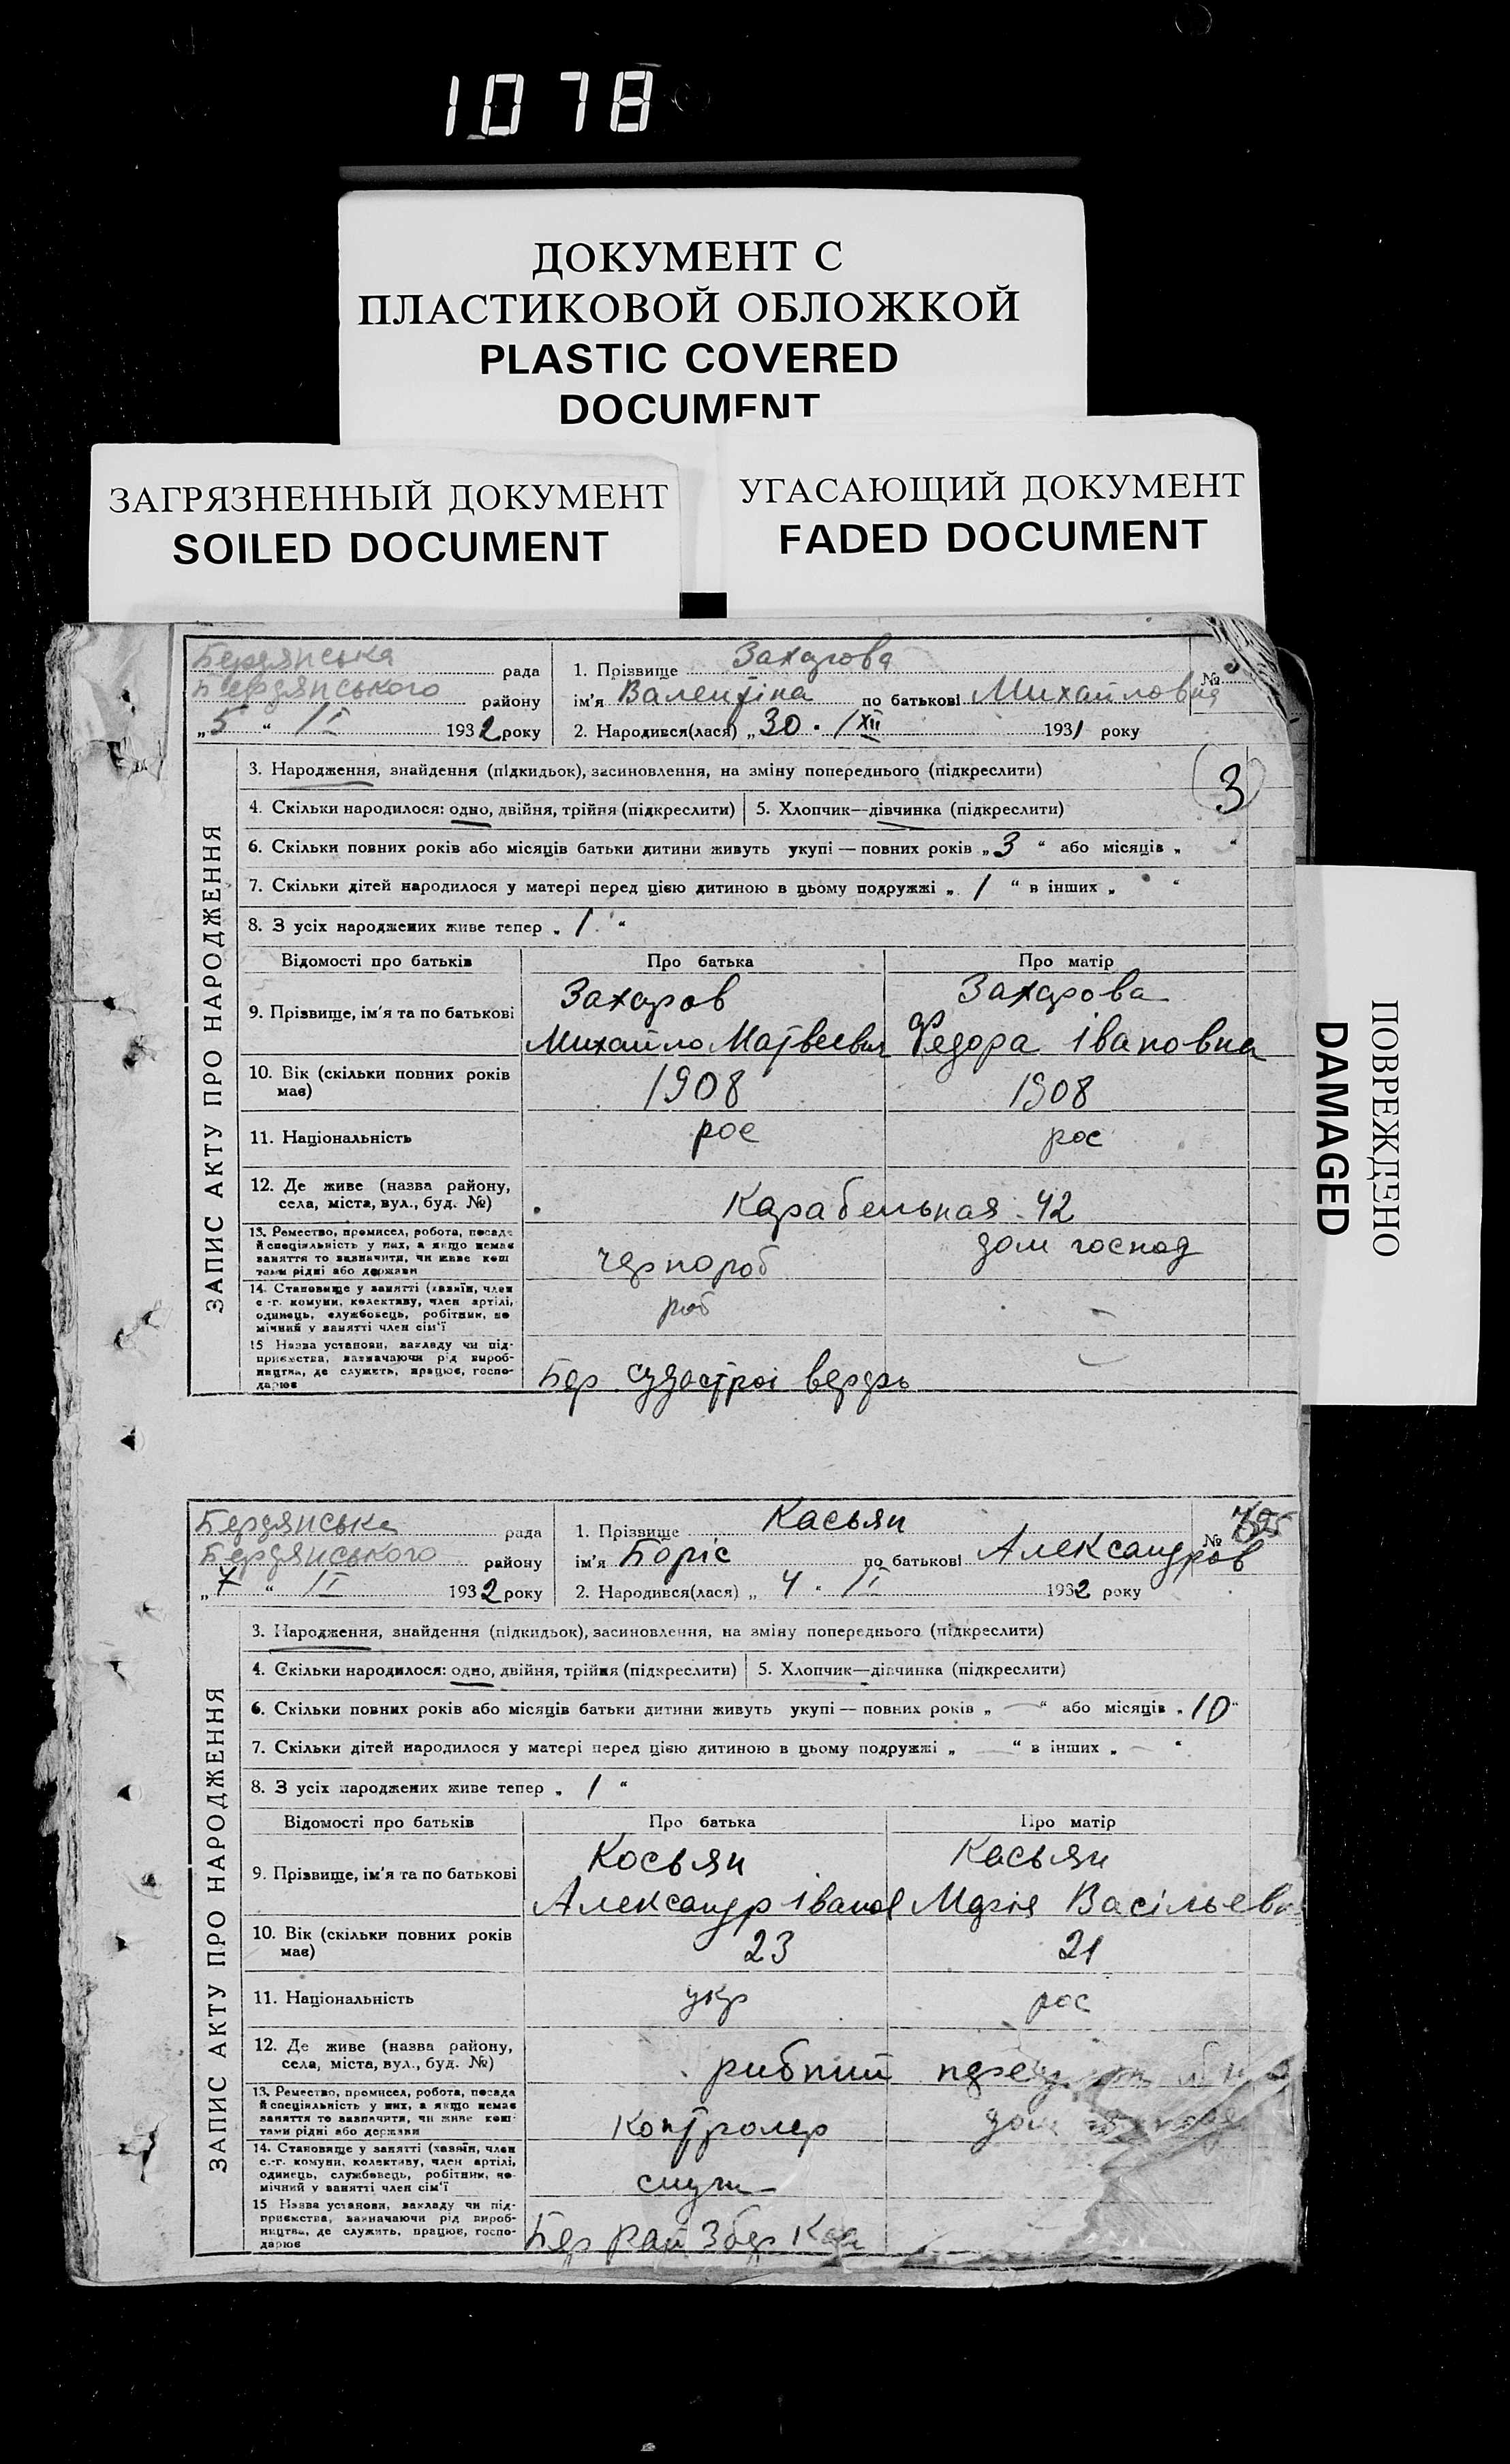 1078
ДОКУМЕНТ С
ПЛАСТИКОВОЙ ОБЛОЖКОЙ
PLASTIC COVERED
DOCUMENT
ЗАГРЯЗНЕННЫЙ ДОКУМЕНТ
SOILED DOCUMENT
УГАСАЮЩИЙ ДОКУМЕНТ
FADED DOCUMENT
ПОВРЕЖДЕНО
DAMAGED
ЗАПИС АКТУ ПРО НАРОДЖЕННЯ
Бердянська рада
Бердянського району
„5“ I 1932 року
1. Прізвище Захарова №
ім'я Валентіна по батькові Михайловна
2. Народився(лася) „30 “ XII 1931 року
3. Народження, знайдення (підкидьок), засиновлення, на зміну попереднього (підкреслити)
3
4. Скільки народилося: одно, двійня, трійня (підкреслити) 5. Хлопчик—дівчинка (підкреслити)
6. Скільки повних років або місяців батьки дитини живуть укупі — повних років „3“ або місяців „ “
7. Скільки дітей народилося у матері перед цією дитиною в цьому подружжі „ 1 “ в інших „ “
8. З усіх народжених живе тепер „ 1 “
Відомості про батьків Про батька Про матір
9. Прізвище, ім'я та по батькові Захаров Захарова
Михайло Матвеевич Федора Івановна
10. Вік (скільки повних років має) 1908 1908
11. Національність рос рос
12. Де живе (назва району, села, міста, вул., буд. №) Карабельная 42
13. Ремество, промисел, робота, посада й спеціяльність у них, а якщо немає заняття то визначити, чи живе коштами рідні або держави чернороб дом господ
14. Становище у занятті (хазяїн, член с.-г. комуни, колективу, член артілі, одинець, службовець, робітник, помічний у занятті член сім'ї роб –
15 Назва установи, закладу чи підприємства, зазначаючи рід виробництва, де служить, працює, господарює Бер судострої верфь –
ЗАПИС АКТУ ПРО НАРОДЖЕННЯ
Бердянська рада
Бердянського району
„7“ I 1932 року
1. Прізвище Касьян №
ім'я Боріс по батькові Александров
2. Народився(лася) „ 4 “ I 1932 року
3. Народження, знайдення (підкидьок), засиновлення, на зміну попереднього (підкреслити)
4. Скільки народилося: одно, двійня, трійня (підкреслити) 5. Хлопчик—дівчинка (підкреслити)
6. Скільки повних років або місяців батьки дитини живуть укупі — повних років „ — “ або місяців „10“
7. Скільки дітей народилося у матері перед цією дитиною в цьому подружжі „ — “ в інших „ — “
8. З усіх народжених живе тепер „ 1 “
Відомості про батьків Про батька Про матір
9. Прізвище, ім'я та по батькові Косьян Касьян
Александр Іванов Марія Васільевн
10. Вік (скільки повних років має) 23 21
11. Національність укр рос
12. Де живе (назва району, села, міста, вул., буд. №) рибний
13. Ремество, промисел, робота, посада й спеціяльність у них, а якщо немає заняття то визначити, чи живе коштами рідні або держави контролер дом
14. Становище у занятті (хазяїн, член с.-г. комуни, колективу, член артілі, одинець, службовець, робітник, помічний у занятті член сім'ї служ
15 Назва установи, закладу чи підприємства, зазначаючи рід виробництва, де служить, працює, господарює Бер Рай Збер